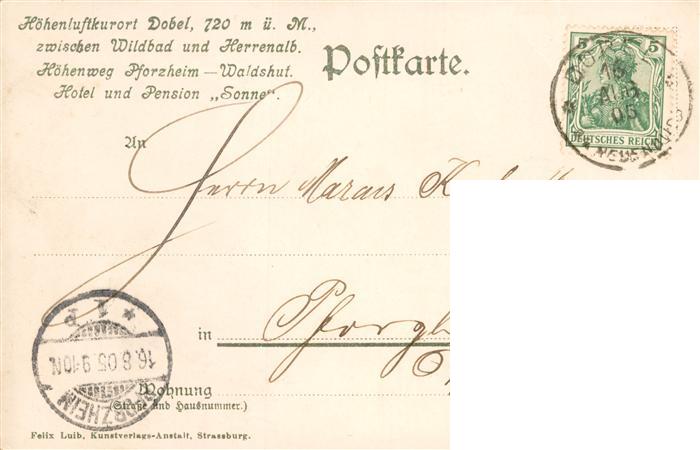 Höhenluftkurort Dobel, 720 m ü. M.,
zwischen Wildbad und Herrenalb.
Höhenweg Pforzheim — Waldshut.
Hotel und Pension „Sonne“.
Postkarte.
5 5
DEUTSCHES REICH
16
AUG
05
An
Herrn
in
PFORZHEIM
16.8.05.9-10N.
* 1 P
Wohnung
(Straße und Hausnummer.)
Felix Luib, Kunstverlags-Anstalt, Strassburg.